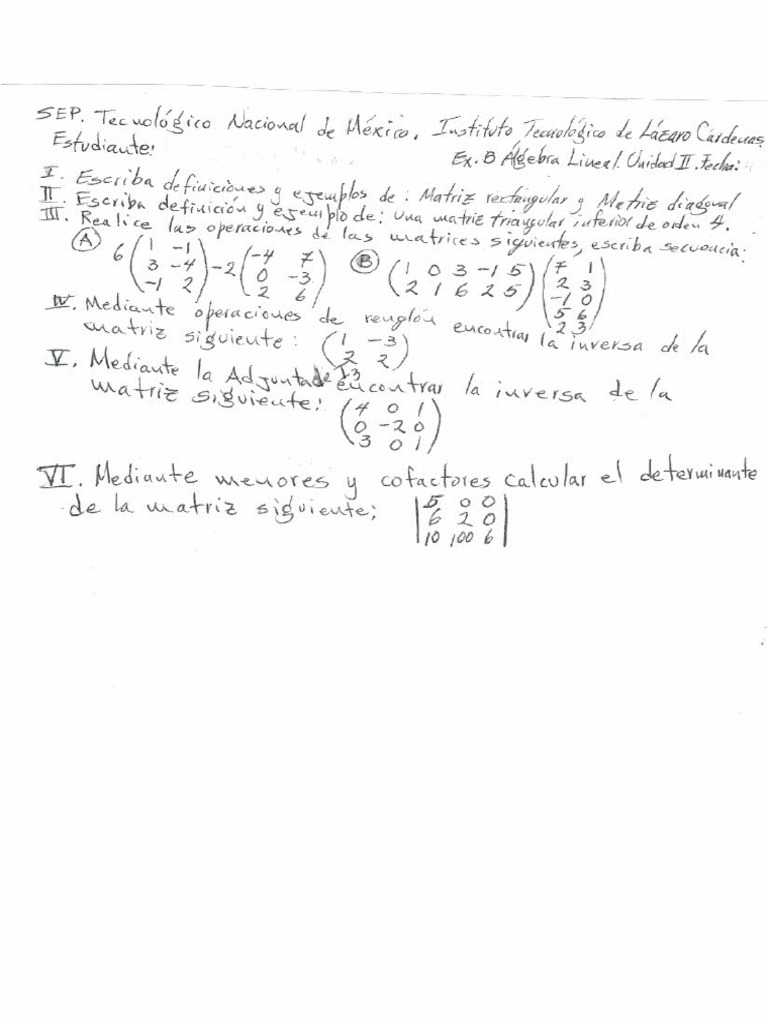 SEP. Tecnológico Nacional de México, Instituto Tecnológico de Lázaro Cárdenas
Estudiante:
Ex. B Álgebra Lineal. Unidad II. Fecha:
I. Escriba definiciones y ejemplos de: Matriz rectangular y Matriz diagonal
II. Escriba definición y ejemplo de: Una matriz triangular inferior de orden 4.
III. Realice las operaciones de las matrices siguientes, escriba secuencia:
(A) 6 (1 -1 / 3 -4 / -1 2) - 2 (-4 7 / 0 -3 / 2 6) (B) (1 0 3 -1 5 / 2 1 6 2 5) (7 1 / 2 3 / -1 0 / 5 6 / 2 3)
IV. Mediante operaciones de renglón encontrar la inversa de la
matriz siguiente: (1 -3 / 2 2)
V. Mediante la Adjunta de encontrar la inversa de la
matriz siguiente: (4 0 1 / 0 -2 0 / 3 0 1)
VI. Mediante menores y cofactores calcular el determinante
de la matriz siguiente; |5 0 0 / 6 2 0 / 10 100 6|